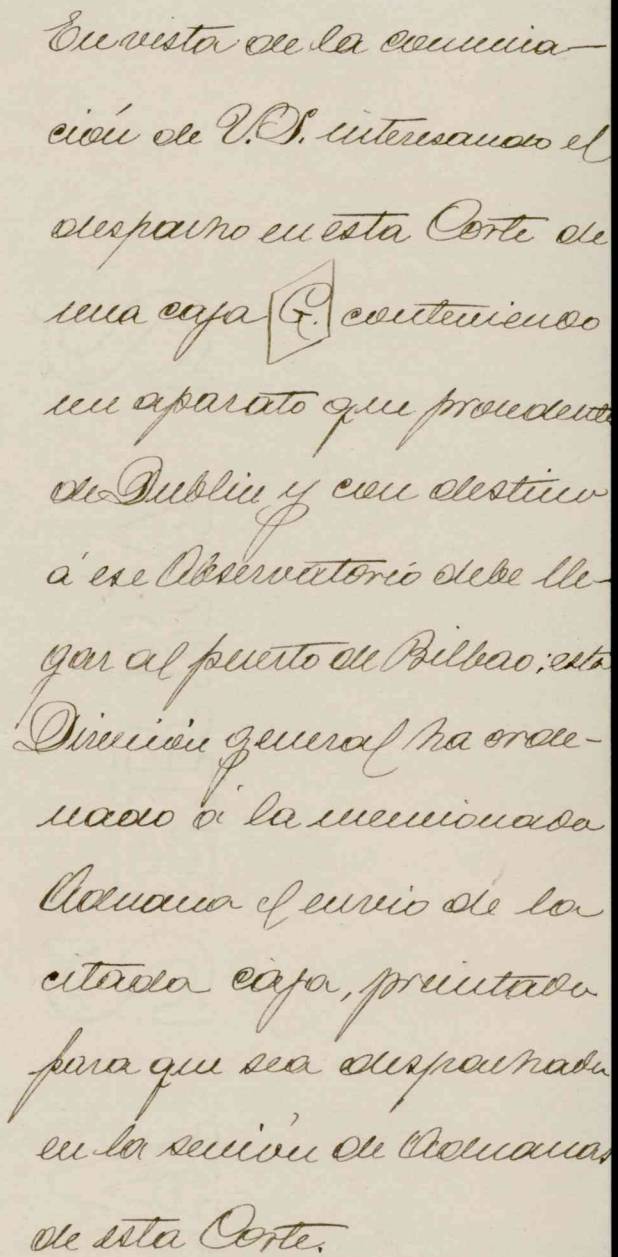 En vista de la comunica-
ción de V.S. interesando el
despacho en esta Corte de
una caja G. conteniendo
un aparato que procedente
de Dublin y con destino
á ese Observatorio debe lle-
gar al puerto de Bilbao; esta
Dirección general ha orde-
nado á la mencionada
Aduana el envio de la
citada caja, precintada
para que sea despachada
en la sección de Aduanas
de esta Corte.